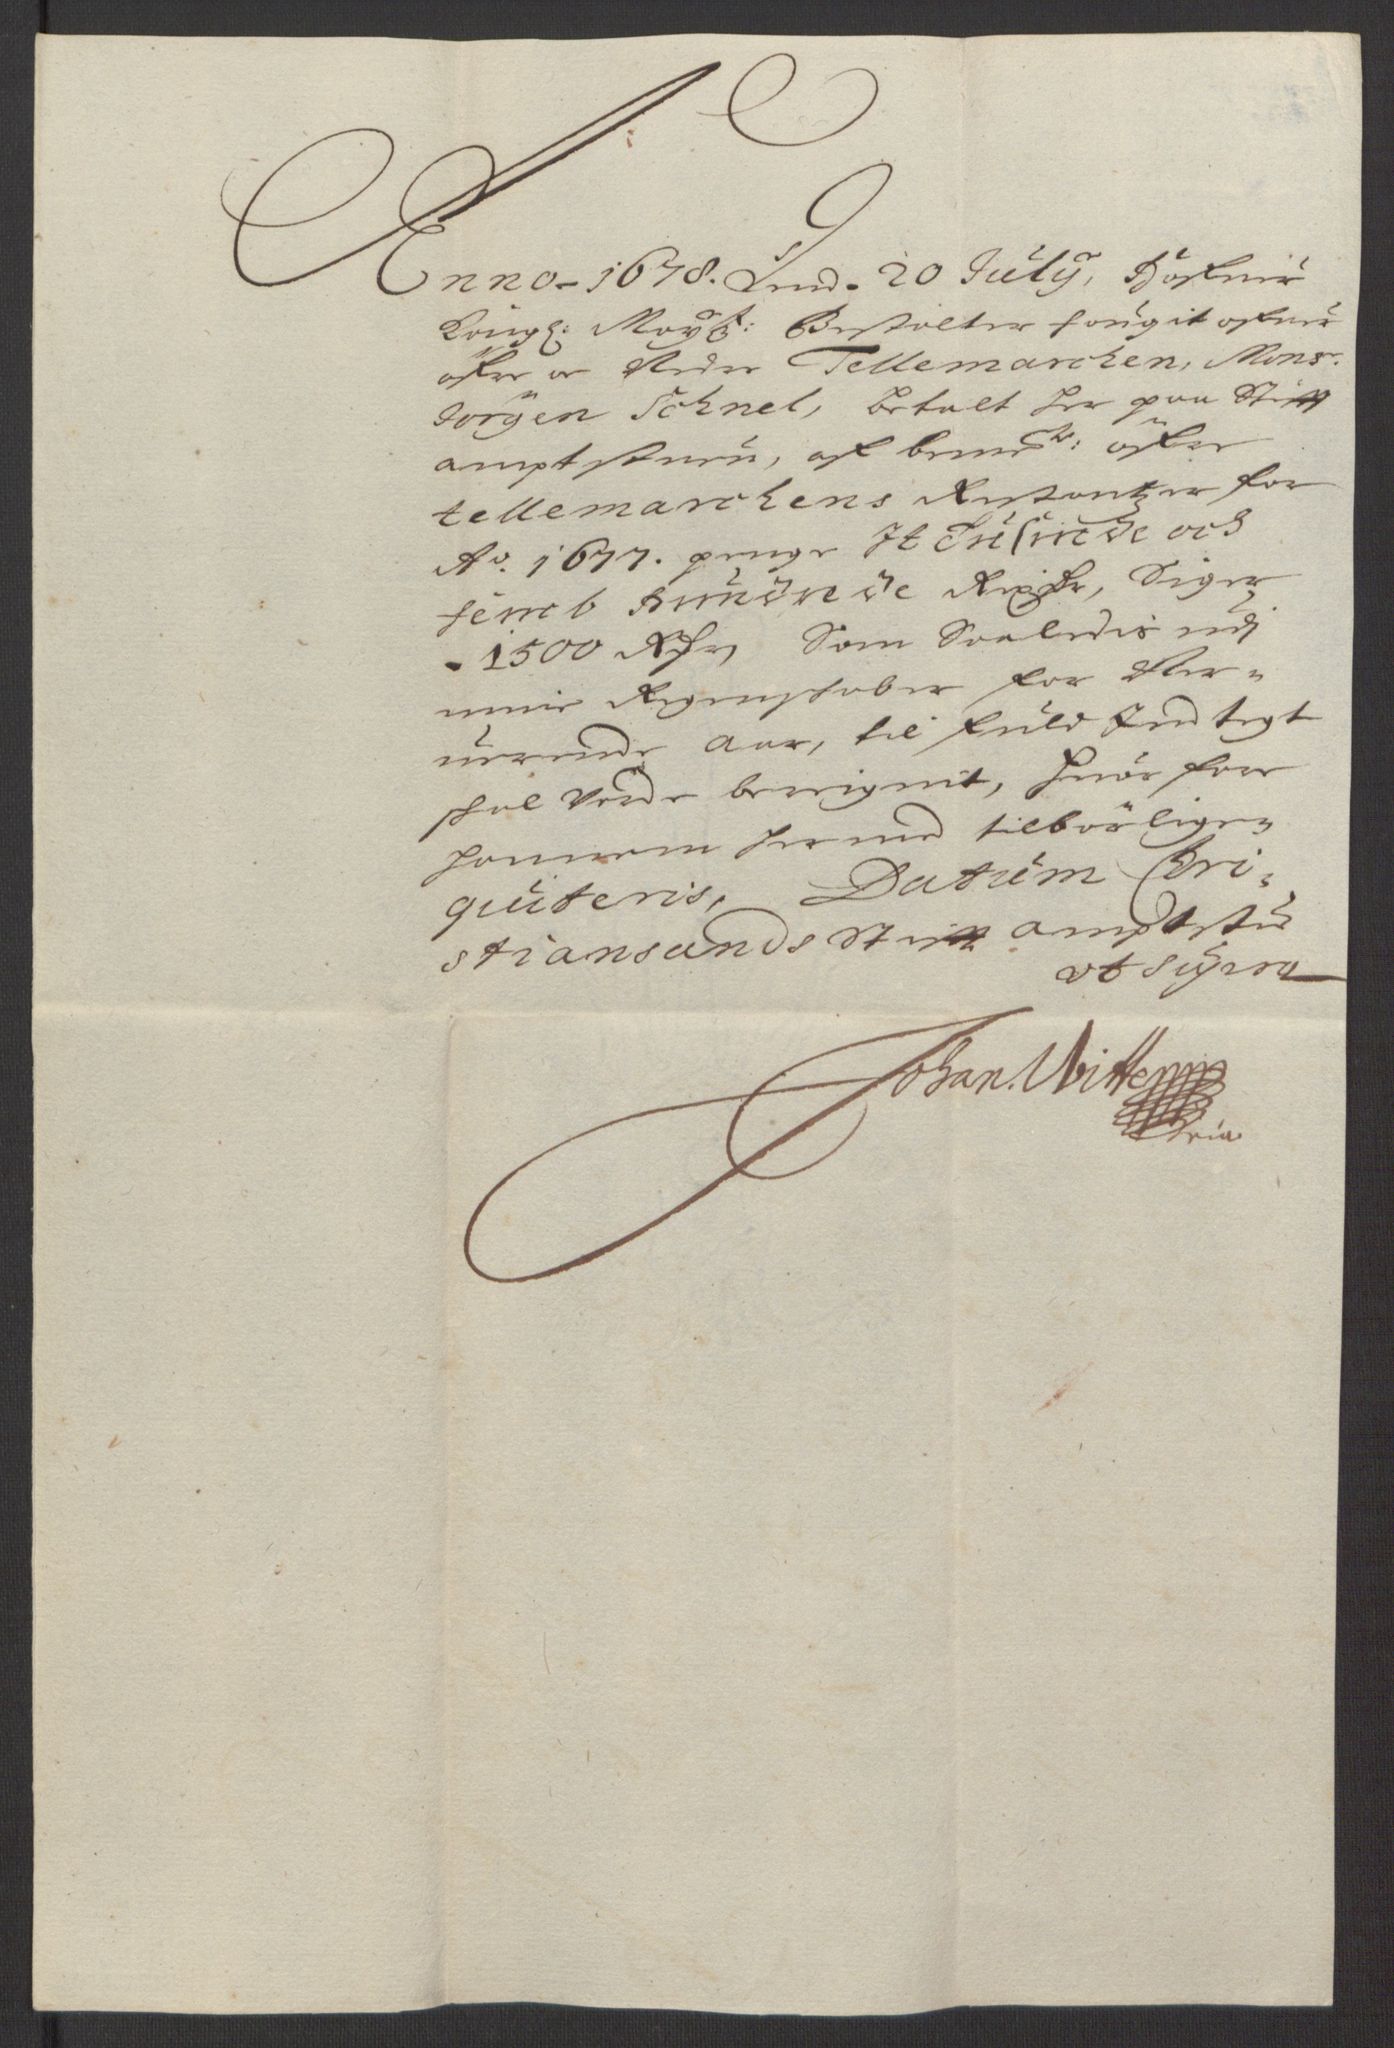 Anno - 1678. Dend. 20 Julÿ, Hafuer
Kongl: Mayts: Bestalter fougit ofuer
öfre oc Nedre Tellemarchen, Monsr.
Jörgen Schnel, betalt her paa Stifft
amptstuen, af bemte: öfre
tellemarchens Restantzer for
Ao. 1677. penge It Tusinde och
femb Hundrede Rixdr, Siger
- 1500 Rdr, Som Saaledis udj
mine Regenskaber for Ner-
uerende Aar, til fuld Indtegt
skal vorde beregnit, huor for
hannem hermed tilbörligen
quiteris, Datum Chri-
stiansands Stifft amptstue
vt supra
Johan. Witten